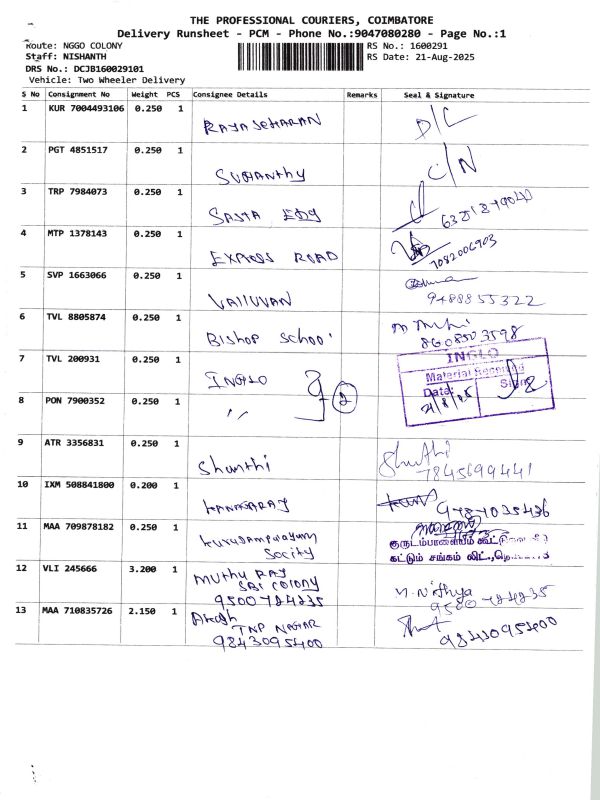 THE PROFESSIONAL COURIERS, COIMBATORE
Delivery Runsheet - PCM - Phone No.:9047080280 - Page No.:1
Route: NGGO COLONY RS No.: 1600291
Staff: NISHANTH RS Date: 21-Aug-2025
DRS No.: DCJB160029101
Vehicle: Two Wheeler Delivery
S No Consignment No Weight PCS Consignee Details Remarks Seal & Signature
1 KUR 7004493106 0.250 1
RAJASEHARAN D/C
2 PGT 4851517 0.250 1 C/N
SUGANTHY
3 TRP 7984073 0.250 1
SASTA EDY
4 MTP 1378143 0.250 1
EXPRESS ROAD 7082006903
5 SVP 1663066 0.250 1
VALLUVAN 9488855322
6 TVL 8805874 0.250 1
BISHOP School 8608503598
7 TVL 200931 0.250 1 INGLO
INGLO 2 Material Received
Date: 21/8/25 Sign
8 PON 7900352 0.250 1
"
9 ATR 3356831 0.250 1 Shuthi
Shanthi 7845699441
10 IXM 508841800 0.200 1
KANAGARAJ 9787035436
11 MAA 709878182 0.250 1
Kurudampalayam குருடம்பாளையம் கூட்டு
Socity கட்டும் சங்கம் லிட்.,
12 VLI 245666 3.200 1
MUTHU RAJ
SBI COLONY M. Nithya
9500784835 9500784835
13 MAA 710835726 2.150 1
Akash
TNP NAGAR
9843095400 9843095400